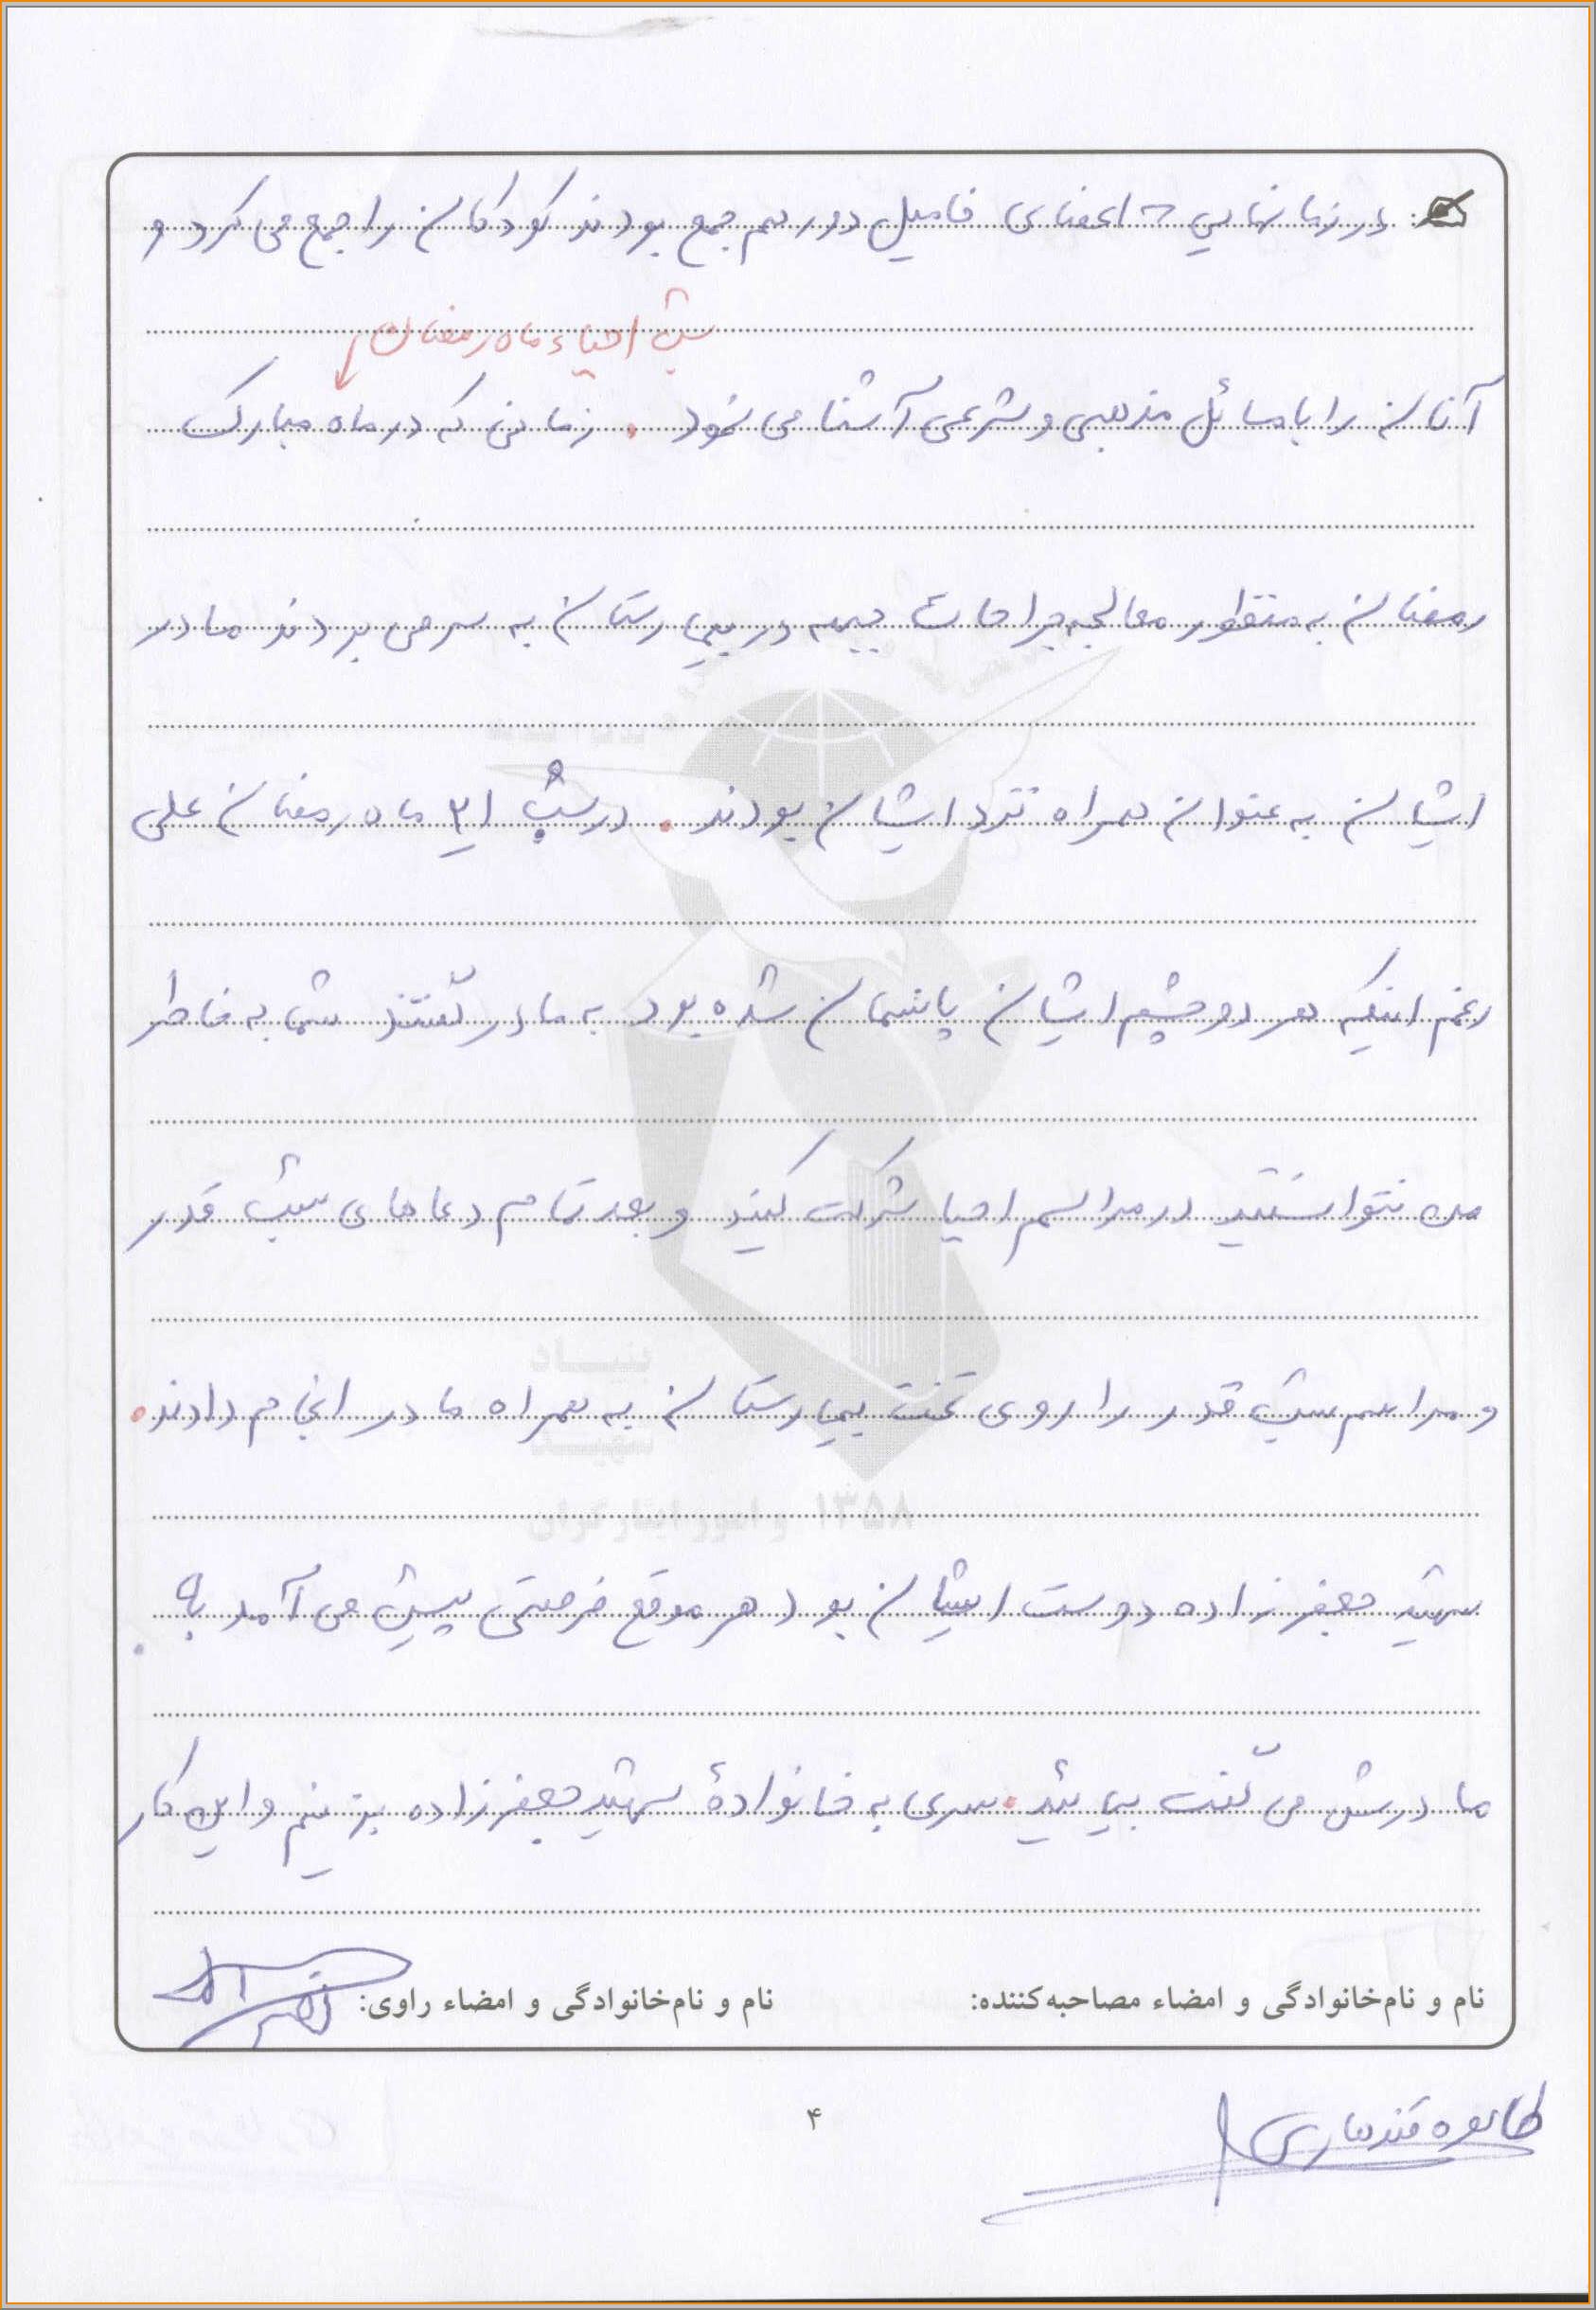 در زمانهایی که اعضای فامیل دور هم جمع بودند کودکان را جمع می کرد و
شب احیاء ماه رمضان
آنان را با مسائل مذهبی و شرعی آشنا می نمود . زمانی که در ماه مبارک
رمضان به منظور معالجه جراحات جبهه در بیمارستان به سر می بردند مادر
ایشان به عنوان همراه نزد ایشان بودند . در شب ۲۱ ماه رمضان علی
رغم اینکه هر دو چشم ایشان پانسمان شده بود به مادر گفتند شما به خاطر
من نتوانستید در مراسم احیا شرکت کنید و بعد تمام دعاهای شب قدر
و مراسم شب قدر را روی تخت بیمارستان به همراه مادر انجام دادند .
شهید جعفرزاده دوست ایشان بود هر موقع فرصتی پیش می آمد به
مادرش می گفت بیائید . سری به خانوادهٔ شهید جعفرزاده بزنیم و این کار
نام و نام‌خانوادگی و امضاء مصاحبه‌کننده: نام و نام‌خانوادگی و امضاء راوی:
طاهره قندهاری
۴
بنیاد
شهید
و امور ایثارگران ۱۳۵۸